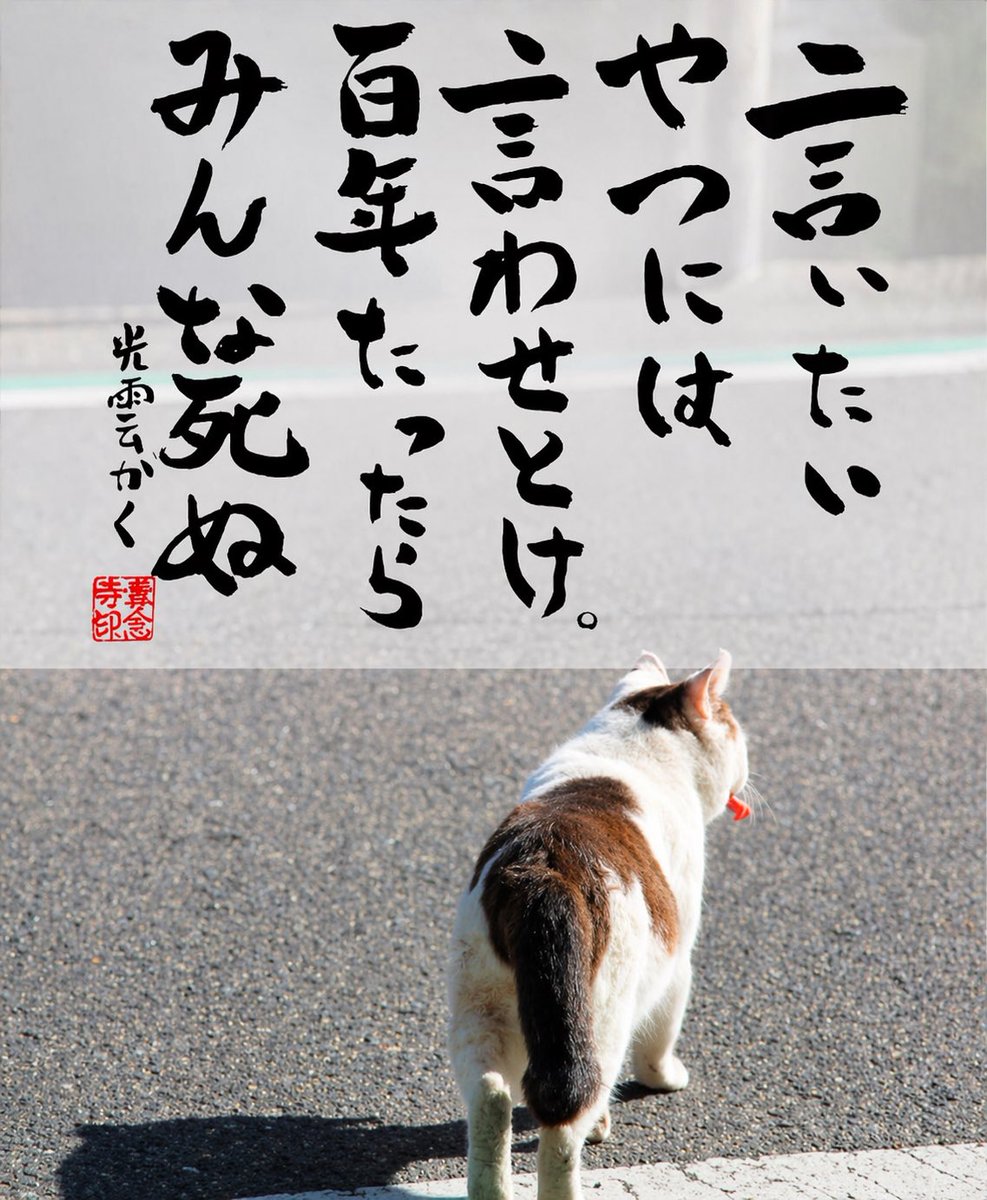 言いたい
やつには
言わせとけ。
百年たったら
みんな死ぬ
光雲がく
善念寺印